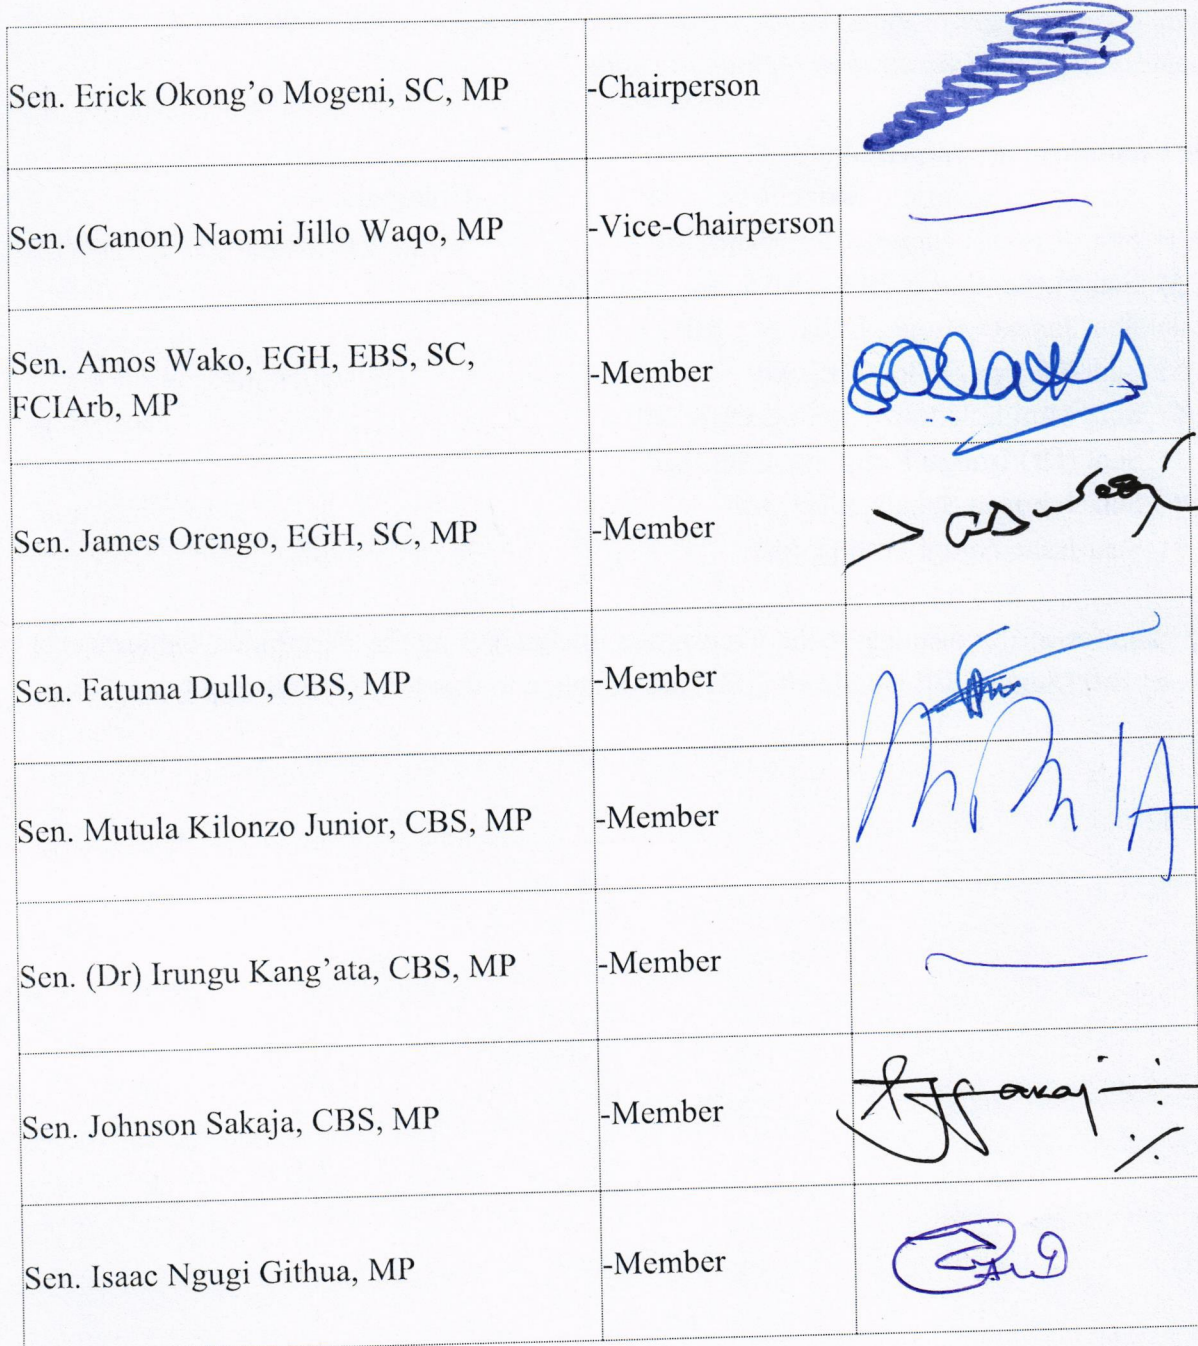 Sen. Erick Okong’o Mogeni, SC, MP -Chairperson
Sen. (Canon) Naomi Jillo Waqo, MP -Vice-Chairperson
Sen. Amos Wako, EGH, EBS, SC,
FCIArb, MP
-Member
Sen. James Orengo, EGH, SC, MP -Member
Sen. Fatuma Dullo, CBS, MP -Member
Sen. Mutula Kilonzo Junior, CBS, MP -Member
Sen. (Dr) Irungu Kang’ata, CBS, MP -Member
Sen. Johnson Sakaja, CBS, MP -Member
Sen. Isaac Ngugi Githua, MP -Member